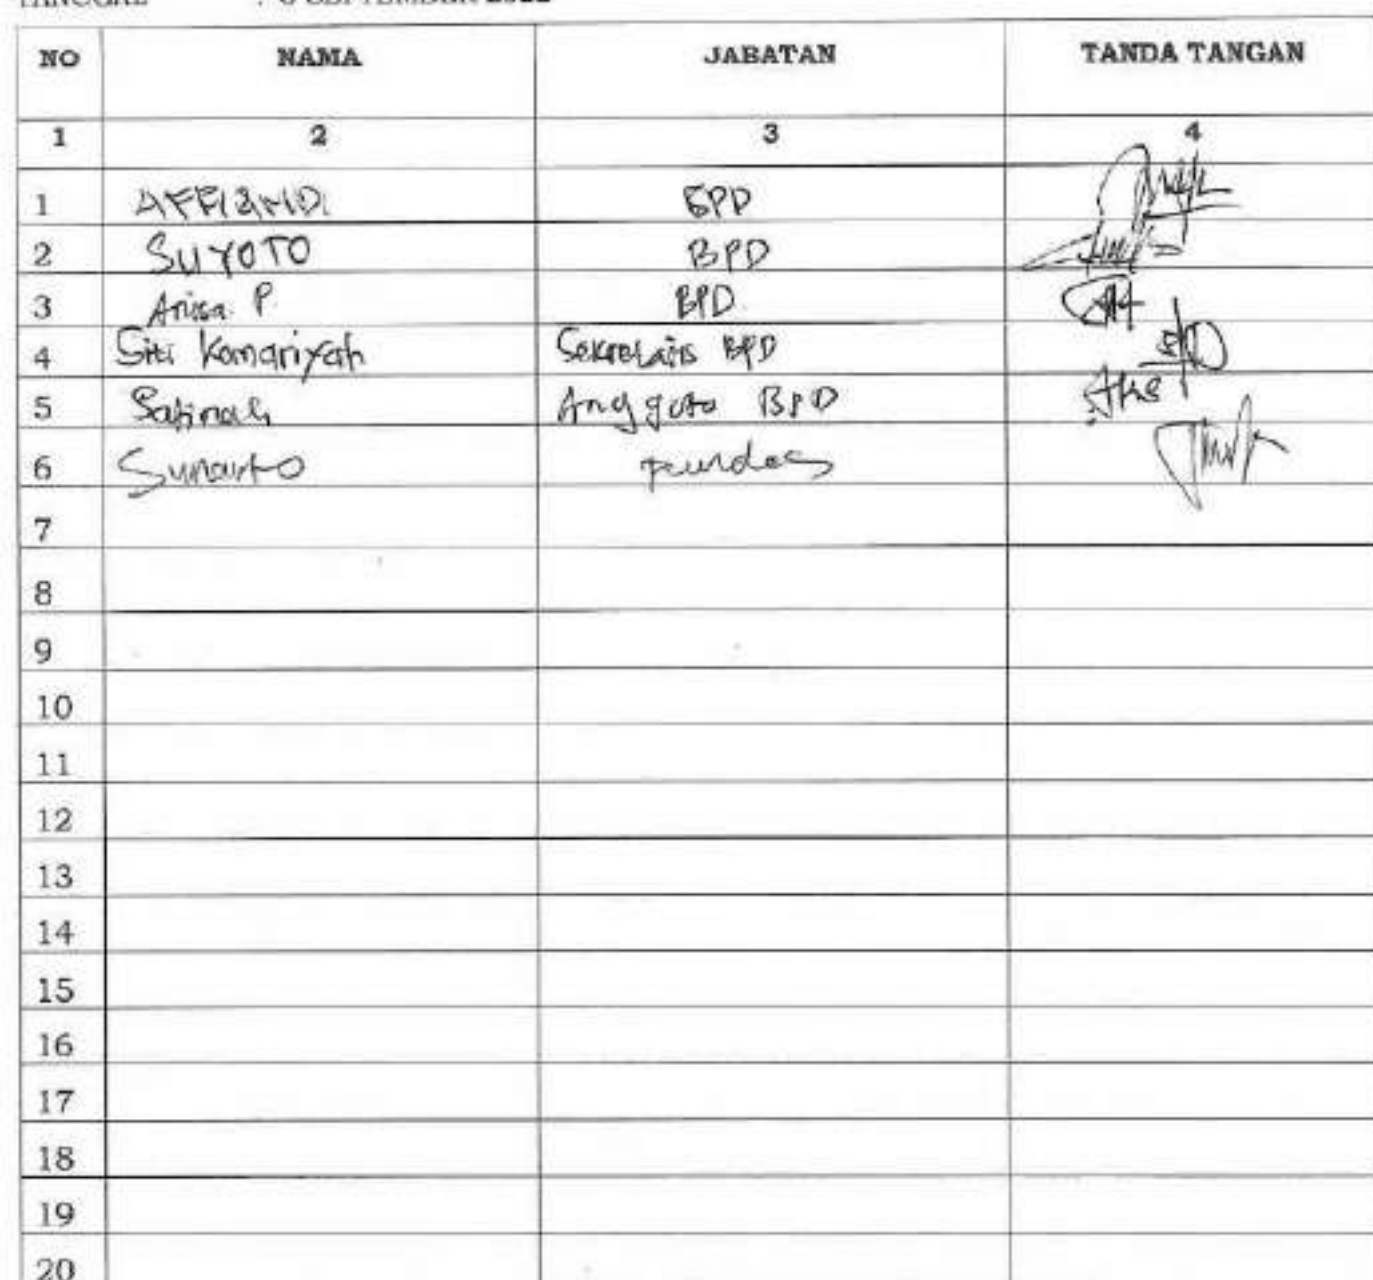 NO NAMA JABATAN TANDA TANGAN
1 2 3 4
1 AFFIANDI BPD
2 SUYOTO BPD
3 Anisa P. BPD
4 Siti Komariyah Sekretaris BPD
5 Satinah Anggota BPD
6 Sunarto
7
8
9
10
11
12
13
14
15
16
17
18
19
20